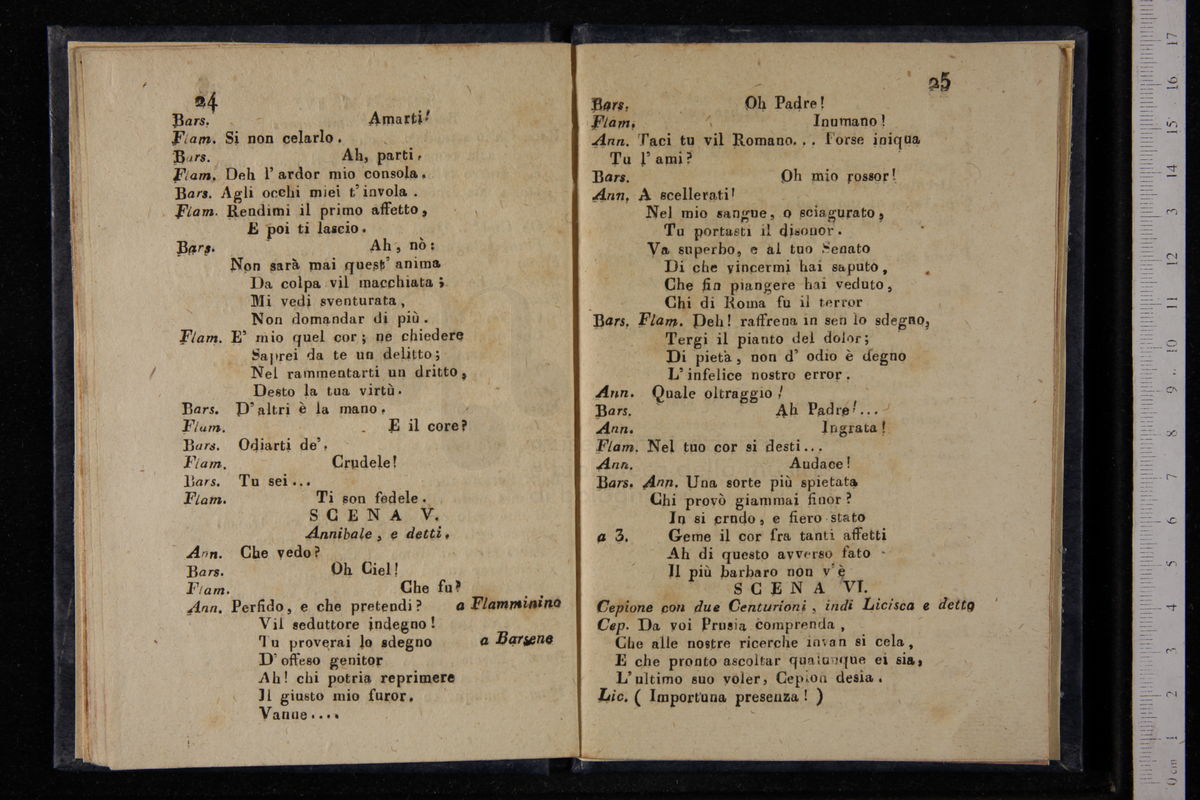 24
Bars. Amarti!
Flam. Si non celarlo.
Bars. Ah, parti.
Flam. Deh l'ardor mio consola.
Bars. Agli occhi miei t'invola.
Flam. Rendimi il primo affetto,
E poi ti lascio.
Bars. Ah, nò:
Non sarà mai quest' anima
Da colpa vil macchiata;
Mi vedi sventurata,
Non domandar di più.
Flam. E' mio quel cor; ne chiedere
Saprei da te un delitto;
Nel rammentarti un dritto,
Desto la tua virtù.
Bars. D'altri è la mano.
Flam. E il core?
Bars. Odiarti de'.
Flam. Crudele!
Bars. Tu sei...
Flam. Ti son fedele.
SCENA V.
Annibale, e detti.
Ann. Che vedo?
Bars. Oh Ciel!
Flam. Che fu?
Ann. Perfido, e che pretendi? a Flamminino
Vil seduttore indegno!
Tu proverai lo sdegno a Barsene
D'offeso genitor
Ah! chi potria reprimere
Il giusto mio furor.
Vanne....
25
Bars. Oh Padre!
Flam. Inumano!
Ann. Taci tu vil Romano... Forse iniqua
Tu l'ami?
Bars. Oh mio rossor!
Ann. A scellerati!
Nel mio sangue, o sciagurato,
Tu portasti il disonor.
Va superbo, e al tuo Senato
Di che vincermi hai saputo,
Che fin piangere hai veduto,
Chi di Roma fu il terror
Bars. Flam. Deh! raffrena in sen lo sdegno,
Tergi il pianto del dolor;
Di pietà, non d' odio è degno
L'infelice nostro error.
Ann. Quale oltraggio!
Bars. Ah Padre!...
Ann. Ingrata!
Flam. Nel tuo cor si desti...
Ann. Audace!
Bars. Ann. Una sorte più spietata
Chi provò giammai finor?
In si crndo, e fiero stato
a 3. Geme il cor fra tanti affetti
Ah di questo avverso fato
Il più barbaro non v'è
SCENA VI.
Cepione con due Centurioni, indi Licisca e detto
Cep. Da voi Prusia comprenda,
Che alle nostre ricerche invan si cela,
E che pronto ascoltar qualunque ei sia,
L'ultimo suo voler, Cepion desia.
Lic. (Importuna presenza!)
0 cm 1 2 3 4 5 6 7 8 9 10 11 12 3 14 15 16 17